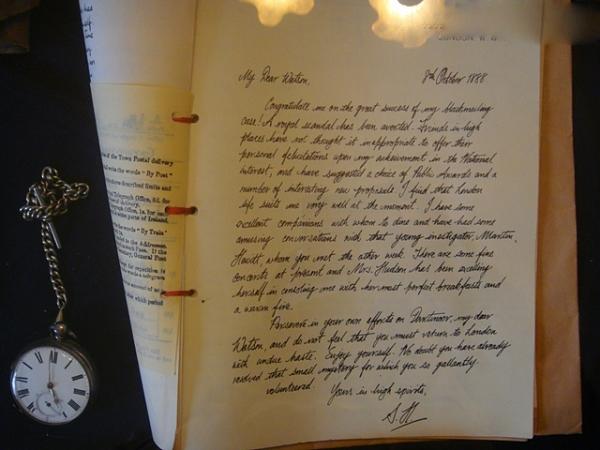 LONDON W.
My Dear Watson, 8th October 1888
Congratulate me on the great success of my blackmailing
case! A royal scandal has been averted. Friends in high
places have not thought it inappropriate to offer their
personal felicitations upon my achievement in the National
interest, and have suggested a choice of Public Awards and a
number of interesting new proposals. I find that London
life suits me very well at the moment. I have some
excellent companions with whom to dine and have had some
amusing conversations with that young investigator, Martin
Hewitt, whom you met the other week. There are some fine
concerts at present and Mrs. Hudson has been excelling
herself in consoling me with her most perfect breakfasts and
a warm fire.
Persevere in your own efforts on Dartmoor, my dear
Watson, and do not feel that you must return to London
with undue haste. Enjoy yourself. No doubt you have already
resolved that small mystery for which you so gallantly
volunteered.
Yours in high spirits,
S.H
of the Town Postal delivery
write the words "By Post"
described limits and
Telegraph Office, 6d. for
delivery.
Telegraph Office, 1s. for
parts of Ireland.
words "By Train"
to the Addressee.
much Pass. If the
Secretary, General Post
for repetition is
a telegram
amount of
which period